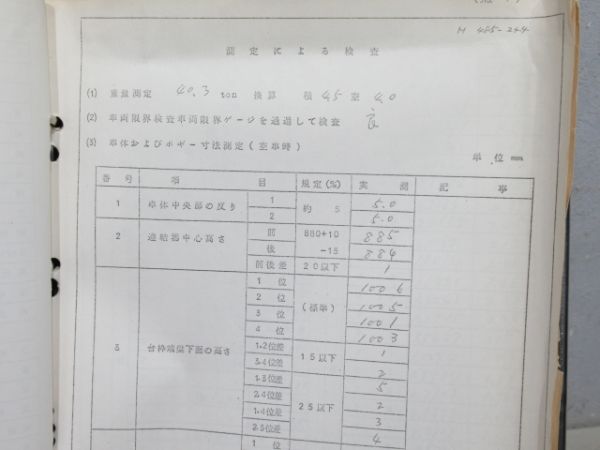 M 485-244
測定による検査
(1) 重量測定 40.3 ton 換算 積 4.5 空 4.0
(2) 車両限界検査車両限界ゲージを通過して検査 良
(3) 車体およびボギー寸法測定(空車時)
単位 mm
番号 項目 規定(%) 実測 記事
1 車体中央部の反り 1 約 5 5.0
2 5.0
2 連結器中心高さ 前 880+10 885
後 -15 884
前後差 20以下 1
3 台枠端梁下面の高さ 1位 (標準) 1006
2位 1005
3位 1001
4位 1003
1.2位差 15以下 1
3.4位差 2
1.3位差 25以下 5
2.4位差 2
1.4位差 3
2.3位差 4
1位